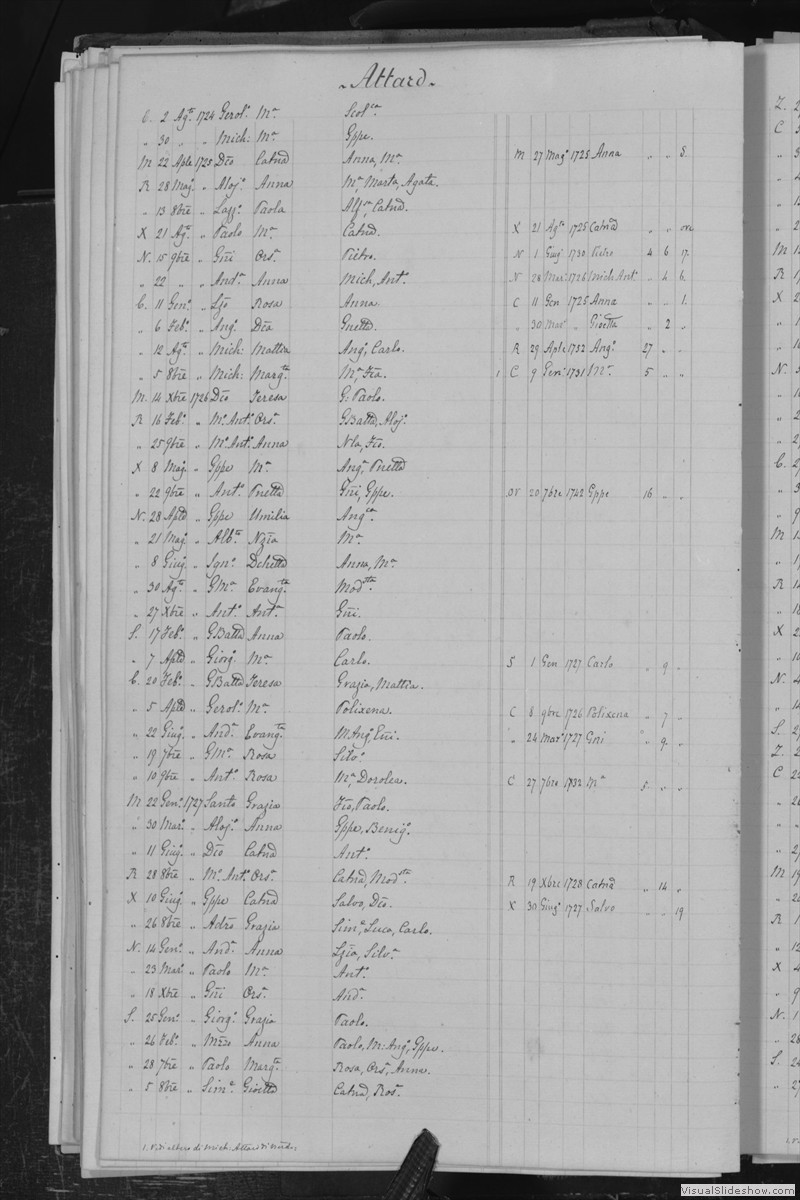 Attard.
C. 2 Agto 1724 Gerolo Ma Scolca
„ 30 „ „ Mich: Ma Gppe.
M 22 Aple 1725 Dio Catna Anna, Ma. M 27 Mago 1725 Anna „ „ 8.
R 28 Mago „ Alojo Anna Ma, Marta, Agata.
„ 13 8bre „ Lazzo Paola Catna.
X 21 Agto „ Paolo Ma Catna. X 21 Agto 1725 Catna „ „ ore
N. 15 9bre „ Gni Orsa Pietro. N 1 Giugo 1730 Pietro 4 6 17.
„ 22 „ „ Anda Anna Mich, Anto. N 28 Mar: 1726 Mich Anto „ 4 6.
C. 11 Geno „ Rosa Anna. C 11 Gen 1725 Anna „ „ 1.
„ 6 Febo „ Ango Dia Gnetta. „ 30 Maro „ Gioetta „ 2 „
„ 12 Agto „ Mich: Mattia Ango, Carlo. R 29 Aple 1732 Ango 27 „ „
„ 5 8bre „ Mich: Margta Ma, 1 C 9 Gen: 1731 Ma. 5 „ „
M. 14 Xbre 1726 Dio Teresa G: Paolo.
R 16 Febo „ Mo Anto Orsa GBatta, Alojo.
„ 25 9bre „ Mo Anto Anna Nla,
X 8 Mago „ Gppe Ma Ango, Pnetta
„ 22 9bre „ Anto Pnetta Gni, Gppe. 20 7bre 1742 Gppe 16 „ „
N. 28 Aple „ Gppe Umilia Angca.
„ 21 Mago „ Albto Nzia Ma.
„ 8 Giugo „ Igno Anna, Ma.
„ 30 Agto „ GMa Evangta Modsta
„ 27 Xbre „ Anto Anta Gni.
S. 17 Febo „ GBatta Anna Paolo.
„ 7 Aple „ Giorgo Ma Carlo. S 1 Gen 1727 Carlo „ 9 „
C. 20 Febo „ GBatta Teresa Grazia, Mattia.
„ 5 Aple „ Gerolo Ma Polixena. C 8 9bre 1726 Polixena „ 7 „
„ 22 Giugo „ Anda Evangta M Ango, „ 24 Maro 1727 Gni „ 9. „
„ 19 7bre „ GMa Rosa Silvo
„ 10 9bre „ Anto Rosa Ma, Dorotea. C 27 7bre 1732 Ma 5. „ „
M. 22 Geno 1727 Santo Grazia Paolo.
„ 30 Maro „ Alojo Anna Gppa, Benigo.
„ 11 Giugo „ Dio Catna Anto.
R 28 8bre „ Mo Anto Orsa Catna, Modsta R 19 Xbre 1728 Catna „ 14 „
X 10 Giugo „ Gppe Catna Salvo, Dio. X 30 Giugo 1727 Salvo „ „ 19
„ 26 8bre „ Adro Grazia Simo, Luca, Carlo.
N. 14 Geno „ Anda Anna Silva
„ 23 Maro „ Paolo Ma Anto.
„ 18 Xbre „ Gni Orsa Anda.
S. 25 Geno „ Giorgo Grazia Paolo.
„ 26 Febo „ Anna Paolo, M: Ango, Gppe.
„ 28 7bre „ Paolo Margta Rosa, Orsa, Anna.
„ 5 8bre „ Sime Gioetta Catna, Rosa.
1. V. di albero di Mich: Attar di
VisualSlideshow.com